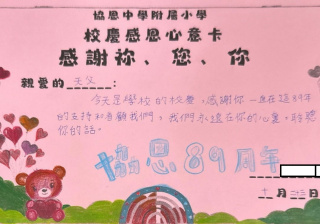 協恩中學附屬小學
校慶感恩心意卡
感謝祢、您、你
親愛的天父:
今天是學校的校慶,感謝你一直在這89年
的支持和看顧我們。我們永遠在你的心裏,聆聽
你的話。
協恩89周年
十一月二十三日